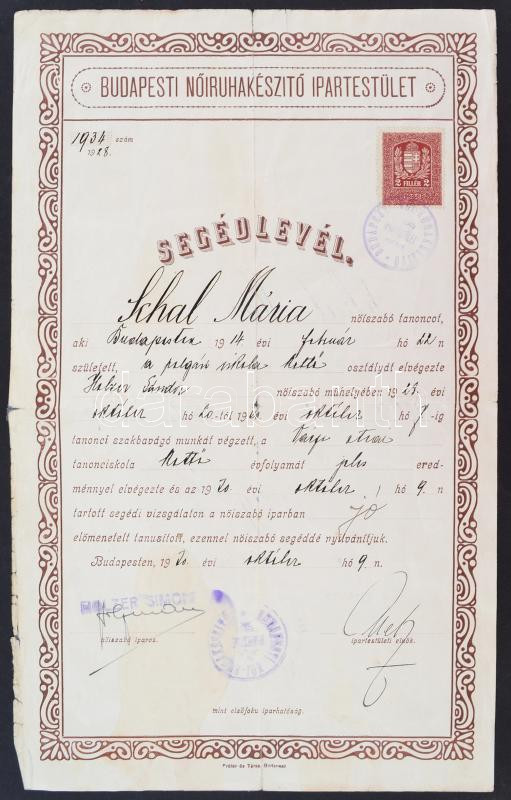 BUDAPESTI NŐIRUHAKÉSZITŐ IPARTESTÜLET
1934 szám
1928.
2 FILLÉR 2
SEGÉDLEVÉL.
Schal Mária nőiszabó tanoncot,
aki Budapesten 1914 évi február hó 22 n
született, a polgári iskola kettő osztályát elvégezte
Holzer Sándor nőiszabó műhelyében 19 évi
október hó -tól 19 évi október hó -ig
tanonci szakbavágó munkát végzett, a
tanonciskola kettő évfolyamát jeles ered-
ménnyel elvégezte és az 1930. évi október hó 9. n
tartott segédi vizsgálaton a nőiszabó iparban jó
előmenetelt tanusított, ezennel nőiszabó segéddé nyilvánítjuk.
Budapesten, 1930. évi október hó 9. n.
HOLZER SIMON
nőiszabó iparos.
ipartestületi elnök.
mint elsőfoku iparhatóság.